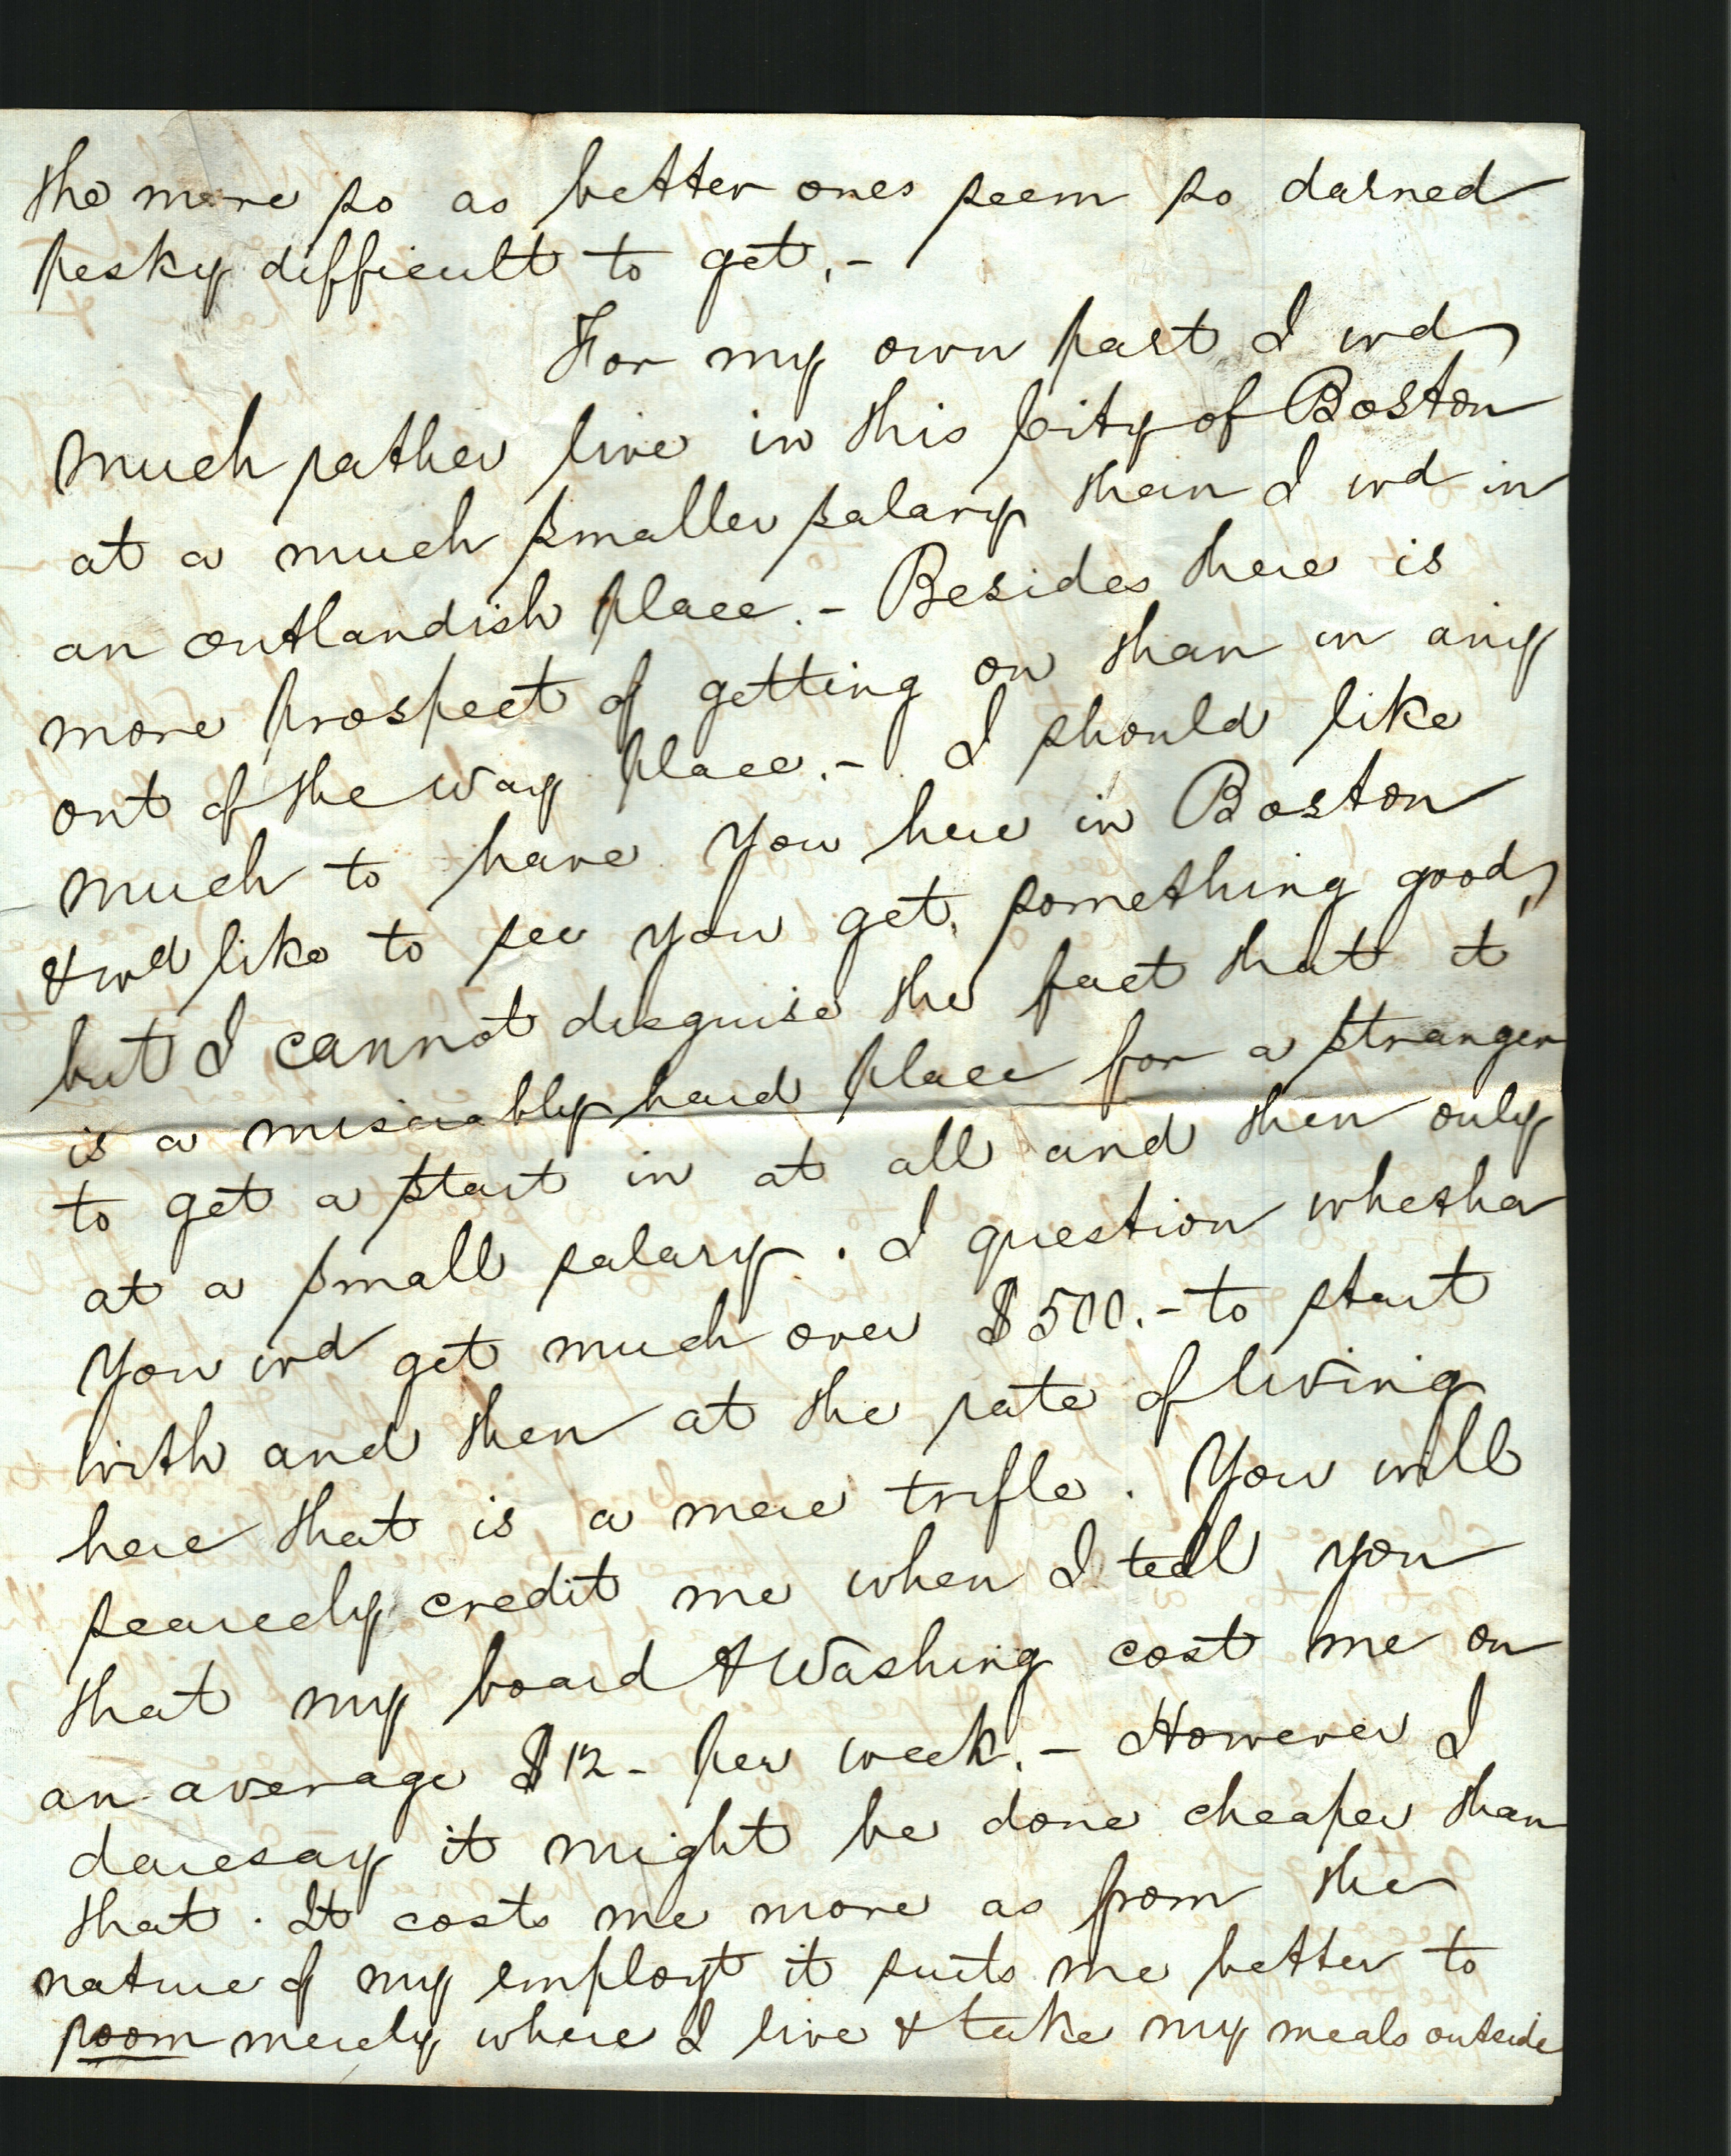 the more so as better ones seem so darned
pesky difficult to get.-
For my own part I wd
much rather live in this City of Boston
at a much smaller salary than I wd in
an outlandish place.- Besides there is
more prospect of getting on than in any
out of the way place.- I should like
much to have you here in Boston
& wd like to see you get something good,
but I cannot disguise the fact that it
is a miserably hard place for a stranger
to get a start in at all and then only
at a small salary. I question whether
you wd get much over $500.- to start
with and then at the rate of living
here that is a mere trifle. You will
scarcely credit me when I tell you
that my board & Washing cost me on
an average $12- per week.- However I
daresay it might be done cheaper than
that. It costs me more as from the
nature of my employt it suits me better to
room merely where I live & take my meals outside